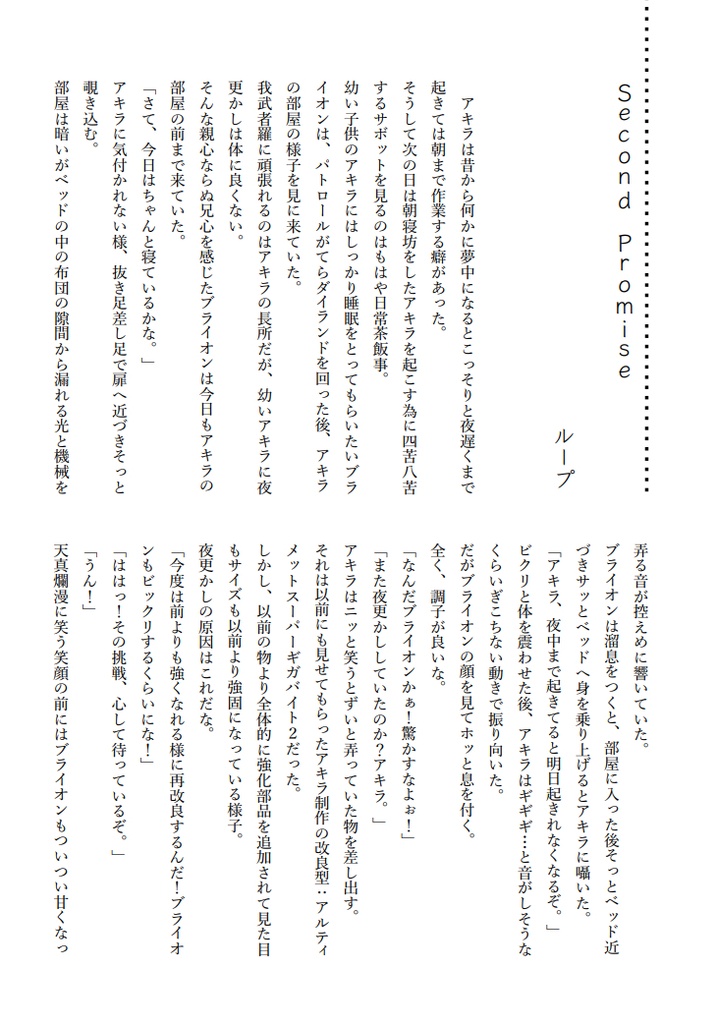 Second Promise
ループ
アキラは昔から何かに夢中になるとこっそりと夜遅くまで
起きては朝まで作業する癖があった。
そうして次の日は朝寝坊をしたアキラを起こす為に四苦八苦
するサボットを見るのはもはや日常茶飯事。
幼い子供のアキラにはしっかり睡眠をとってもらいたいブラ
イオンは、パトロールがてらダイランドを回った後、アキラ
の部屋の様子を見に来ていた。
我武者羅に頑張れるのはアキラの長所だが、幼いアキラに夜
更かしは体に良くない。
そんな親心ならぬ兄心を感じたブライオンは今日もアキラの
部屋の前まで来ていた。
「さて、今日はちゃんと寝ているかな。」
アキラに気付かれない様、抜き足差し足で扉へ近づきそっと
覗き込む。
部屋は暗いがベッドの中の布団の隙間から漏れる光と機械を
弄る音が控えめに響いていた。
ブライオンは溜息をつくと、部屋に入った後そっとベッド近
づきサッとベッドへ身を乗り上げるとアキラに囁いた。
「アキラ、夜中まで起きてると明日起きれなくなるぞ。」
ビクリと体を震わせた後、アキラはギギギ…と音がしそうな
くらいぎこちない動きで振り向いた。
だがブライオンの顔を見てホッと息を付く。
全く、調子が良いな。
「なんだブライオンかぁ！驚かすなよぉ！」
「また夜更かししていたのか？アキラ。」
アキラはニッと笑うとずいと弄っていた物を差し出す。
それは以前にも見せてもらったアキラ制作の改良型：アルティ
メットスーパーギガバイト２だった。
しかし、以前の物より全体的に強化部品を追加されて見た目
もサイズも以前より強固になっている様子。
夜更かしの原因はこれだな。
「今度は前よりも強くなれる様に再改良するんだ！ブライオ
ンもビックリするくらいにな！」
「ははっ！その挑戦、心して待っているぞ。」
「うん！」
天真爛漫に笑う笑顔の前にはブライオンもついつい甘くなっ